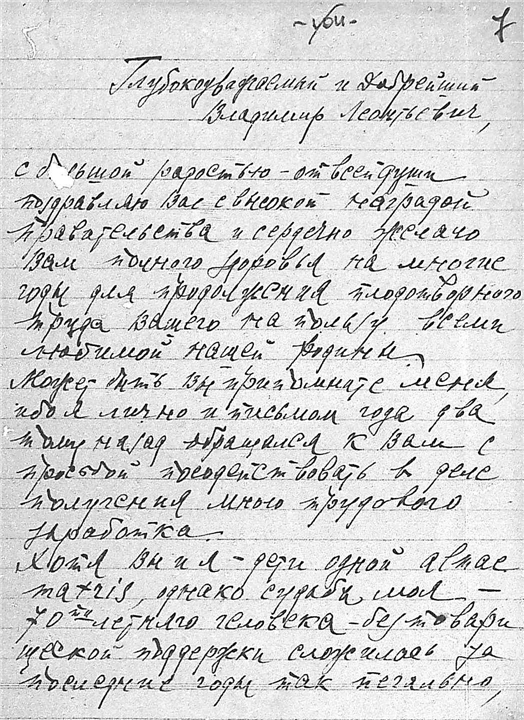 7
Глубокоуважаемый и Добрейший
Владимир Леонтьевич,
с большой радостью - от всей души
поздравляю Вас с высокой наградой
правительства и сердечно желаю
Вам полного здоровья на многие
годы для продолжения плодотворного
труда Вашего на пользу всеми
любимой нашей Родины.
Может быть Вы припомните меня,
ибо я лично и письмом года два
тому назад обращался к Вам с
просьбой посодействовать в деле
получения мною трудового
заработка.
Хотя Вы и я - дети одной almae
matris, однако судьба моя -
70ти летнего человека - без товари
щеской поддержки сложилась за
последние годы так печально,